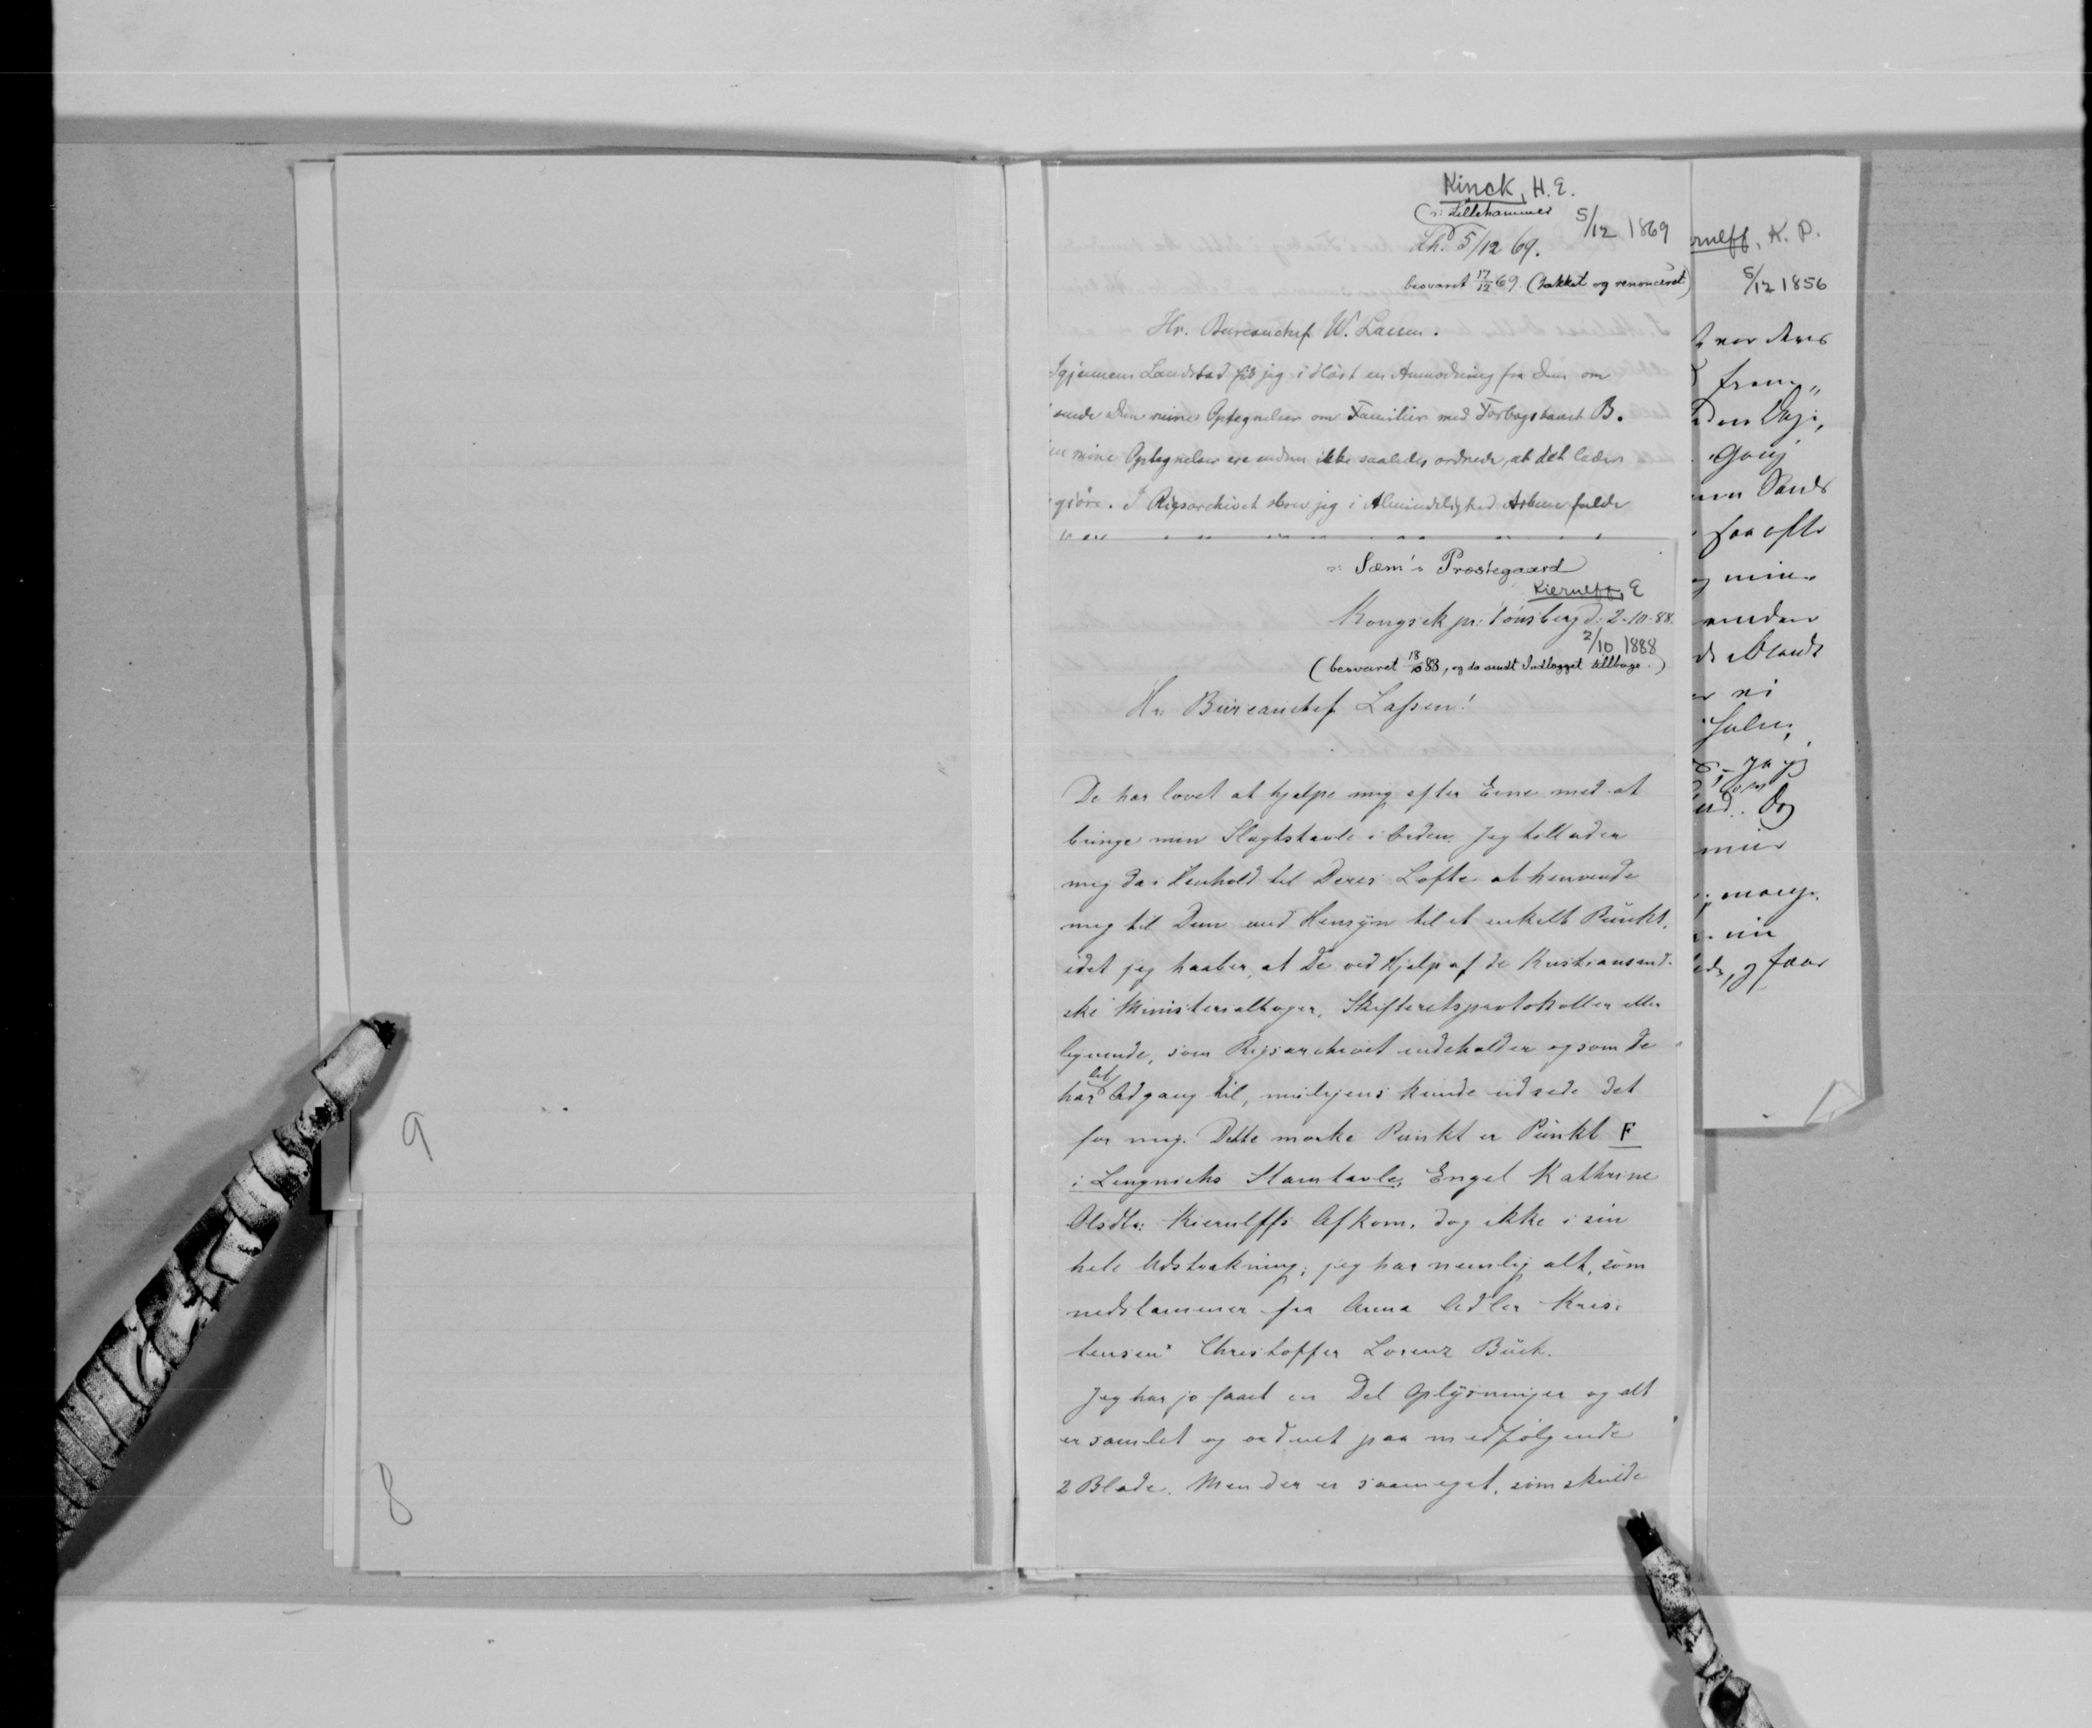 Kinck, H. E.
(ɔ: Lillehammer
5/12 1869
Lh. 5/12 69.
besvaret 17/12 69. (takket og renonceret)
Hr. Bureauchef W. Lassen.
Igjennem Landstad fik jeg i Høst en Anmodning fra Dem om
sende Dem mine Optegnelser om Familier med Forbogstavet B.
mine Optegnelser ere endnu ikke saaledes ordnede, at det lader
gjöre. I Rigsarchivet skrev jeg i Almindelighed Arkene fulde
ɔ: Sæm's Præstegaard
Kierulff, E
Kongsek pr: Tønsberg d: 2-10-88.
2/10 1888
(besvaret 18/10 88, og da sendt Indlægget tilbage.)
Hr: Büreauchef Lassen!
De har lovet at hjælpe mig efter Evne med at
bringe min Slægtstavle i Orden. Jeg tillader
mig da i Henhold til Deres Løfte at henvende
mig til Dem med Hensyn til et enkelt Pünkt,
idet jeg haaber, at De ved Hjælp af de Kristiansand-
ske Ministerialbøger, Skifteretsprotokoller eller
lignende, som Rigsarchivet indeholder og som De
har let Adgang til, muligens kunde udrede det
for mig. Dette mørke Punkt er Pünkt F
i Lengnichs Stamtavle, Engel Kathrine
Olsdtr: Kierulffs Afkom, dog ikke i sin
hele Udstrækning; jeg har nemlig alt, som
nedstammer fra Anna Adler Kris-
tensen Christoffer Lorenz Büch.
Jeg har jo faaet en Del Oplysninger og alt
er samlet og ordnet paa medfølgende
2 Blade. Men der er saameget, som skulde
rulff, K. P.
5/12 1856
var deres
frem,,
Gang
saa ofte
min
endnu
vi
Og
nu
og faar
9
8